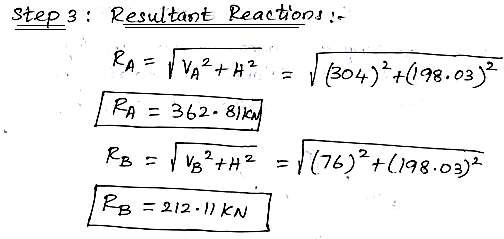 Step 3 : Resultant Reactions :-
R_A = √(V_A² + H²) = √((304)² + (198.03)²)
R_A = 362.81 KN
R_B = √(V_B² + H²) = √((76)² + (198.03)²)
R_B = 212.11 KN